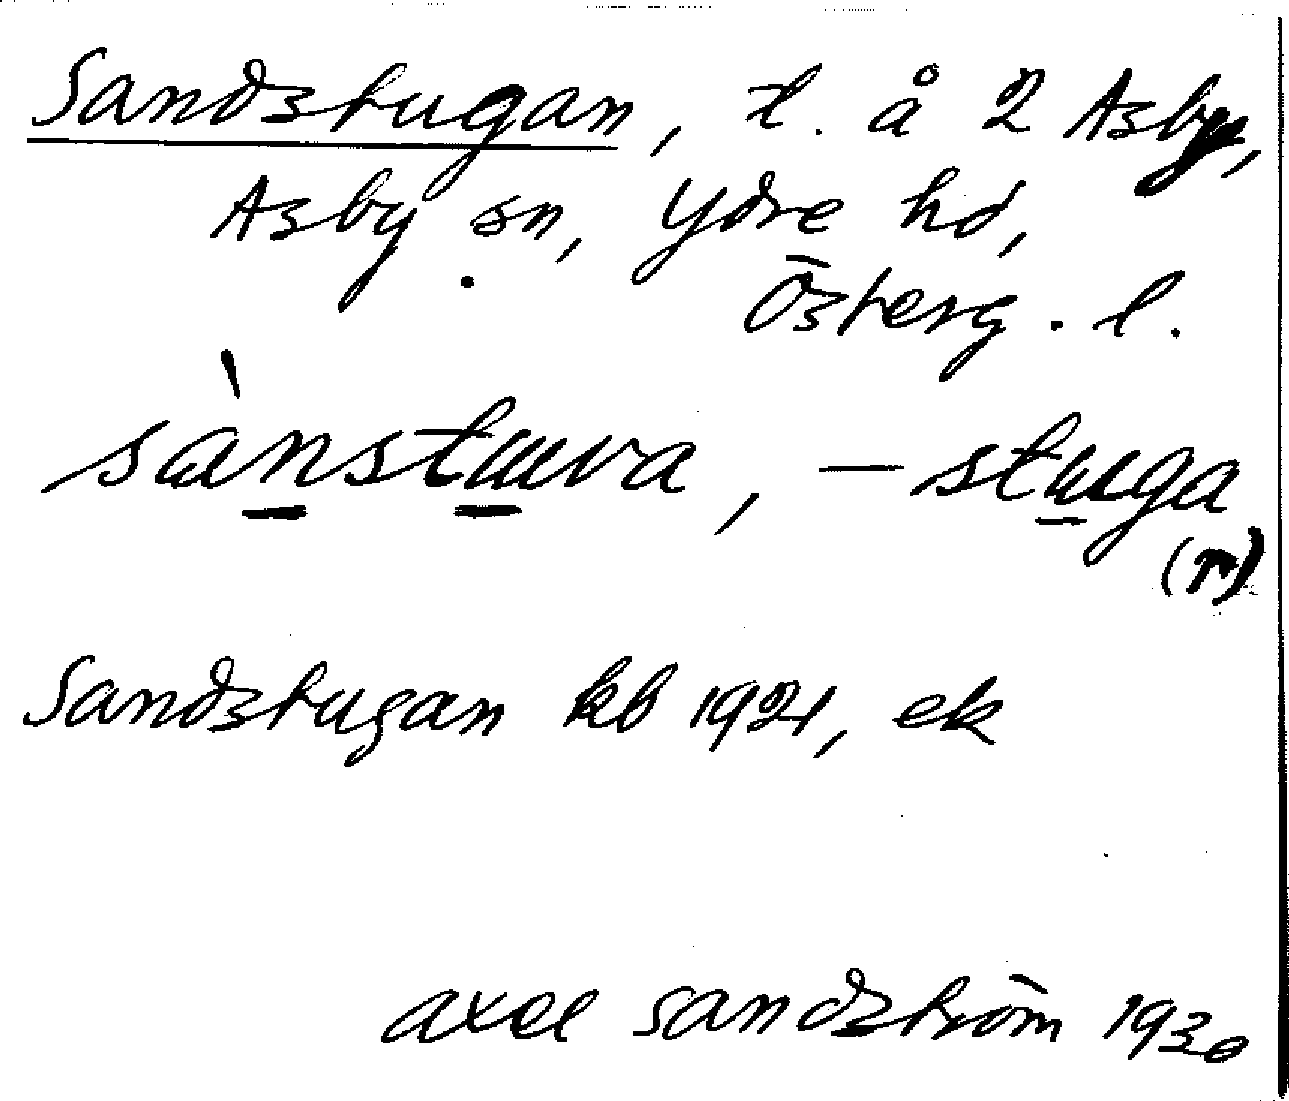 Sandstugan, t. å 2 Asby,
Asby sn, Ydre hd,
Österg. l.
sànstuva, – stuga
(r)
Sandstugan kb 1921, ek
axel sandström 1930